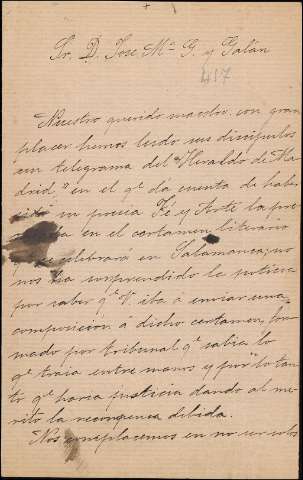 Sr. D. Jose Mª G. y Galán
417
Nuestro querido maestro: con gran
placer hemos leido sus discipulos
un telegrama del "Heraldo de Ma
drid" en el qe da cuenta de haber
su poesia Fé y Arte la pre
en el certamen literario
celebrará en Salamanca; no
nos ha sorprendido la noticia
por saber qe V. iba a enviar una
composicion á dicho certamen, for
mado por tribunal qe sabia lo
qe traia entre manos y por lo tan
to qe haria justicia dando al me
rito la recompensa debida.
Nos complacemos en no ser solos